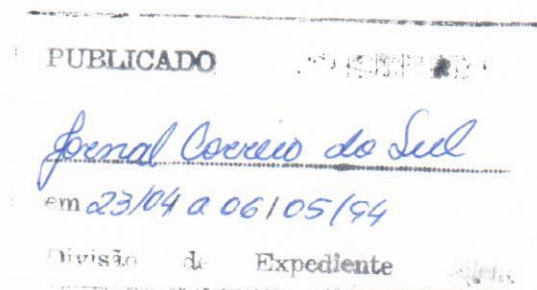 PUBLICADO
Jornal Correio do Sul
em 23/04 a 06/05/94
Divisão de Expediente